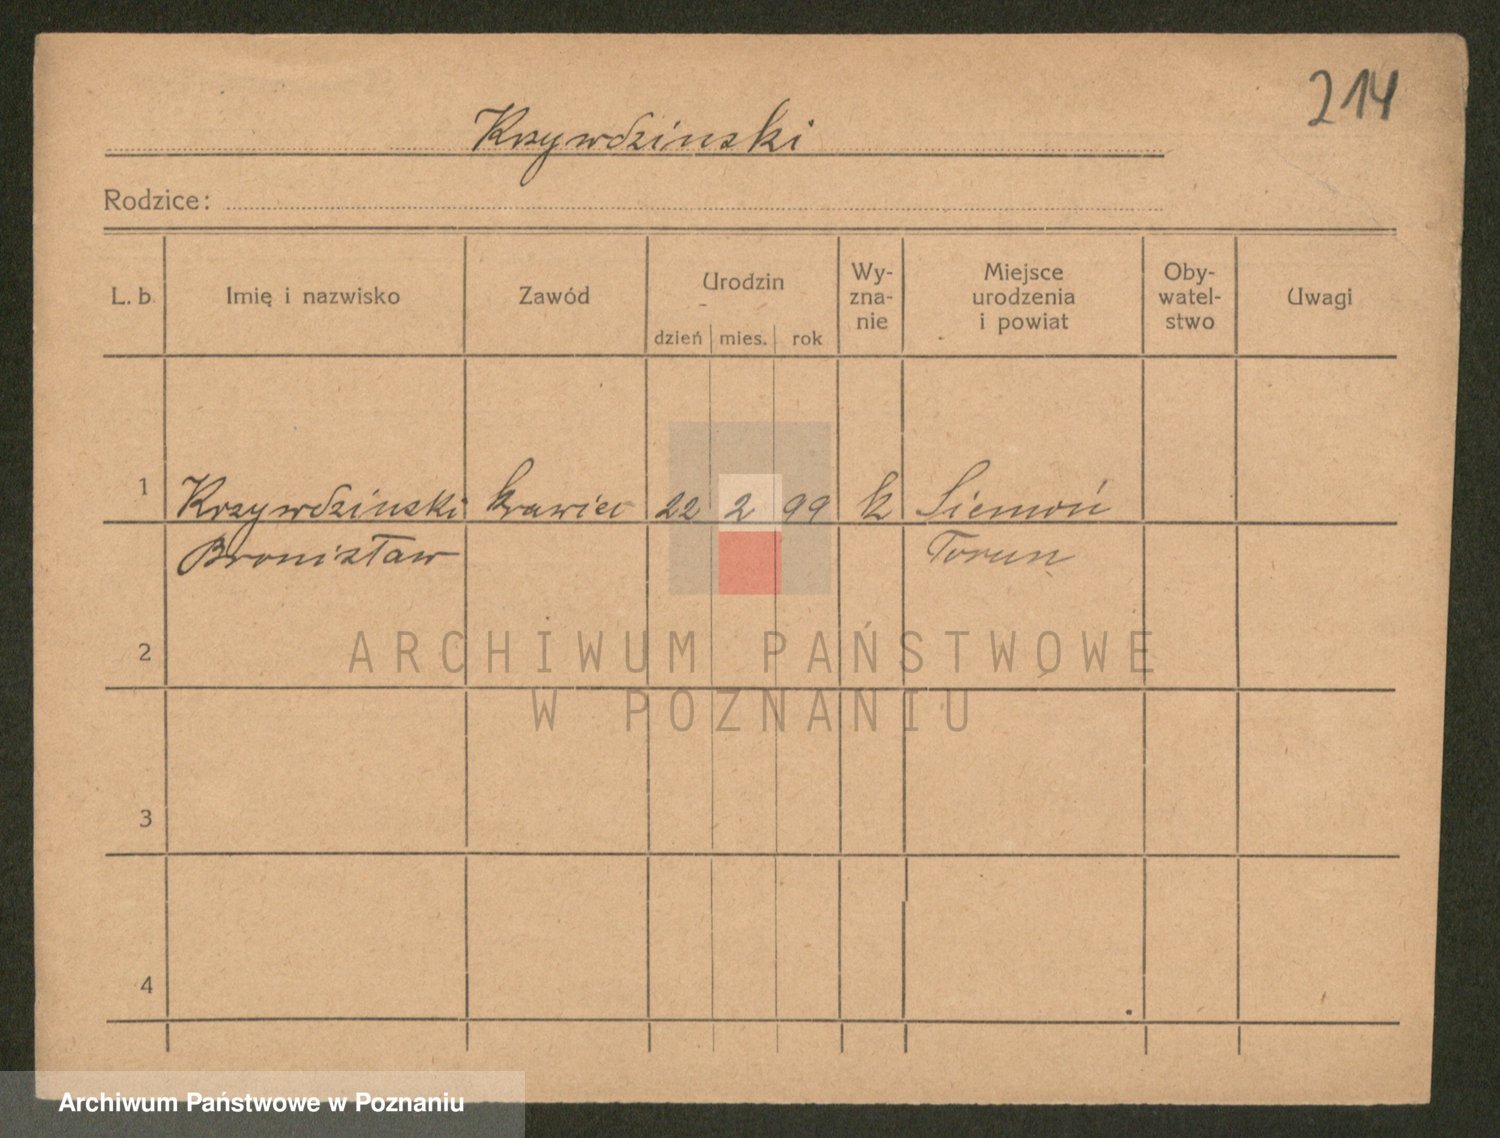 214
Krzywdzinski
Rodzice:
L. b. Imię i nazwisko Zawód Urodzin dzień mies. rok Wy-zna-nie Miejsce urodzenia i powiat Oby-watel-stwo Uwagi
1 Krzywdzinski krawiec 22 2 99 k Siemoń
Bronisław Torun
2
3
4
ARCHIWUM PAŃSTWOWE
W POZNANIU
Archiwum Państwowe w Poznaniu